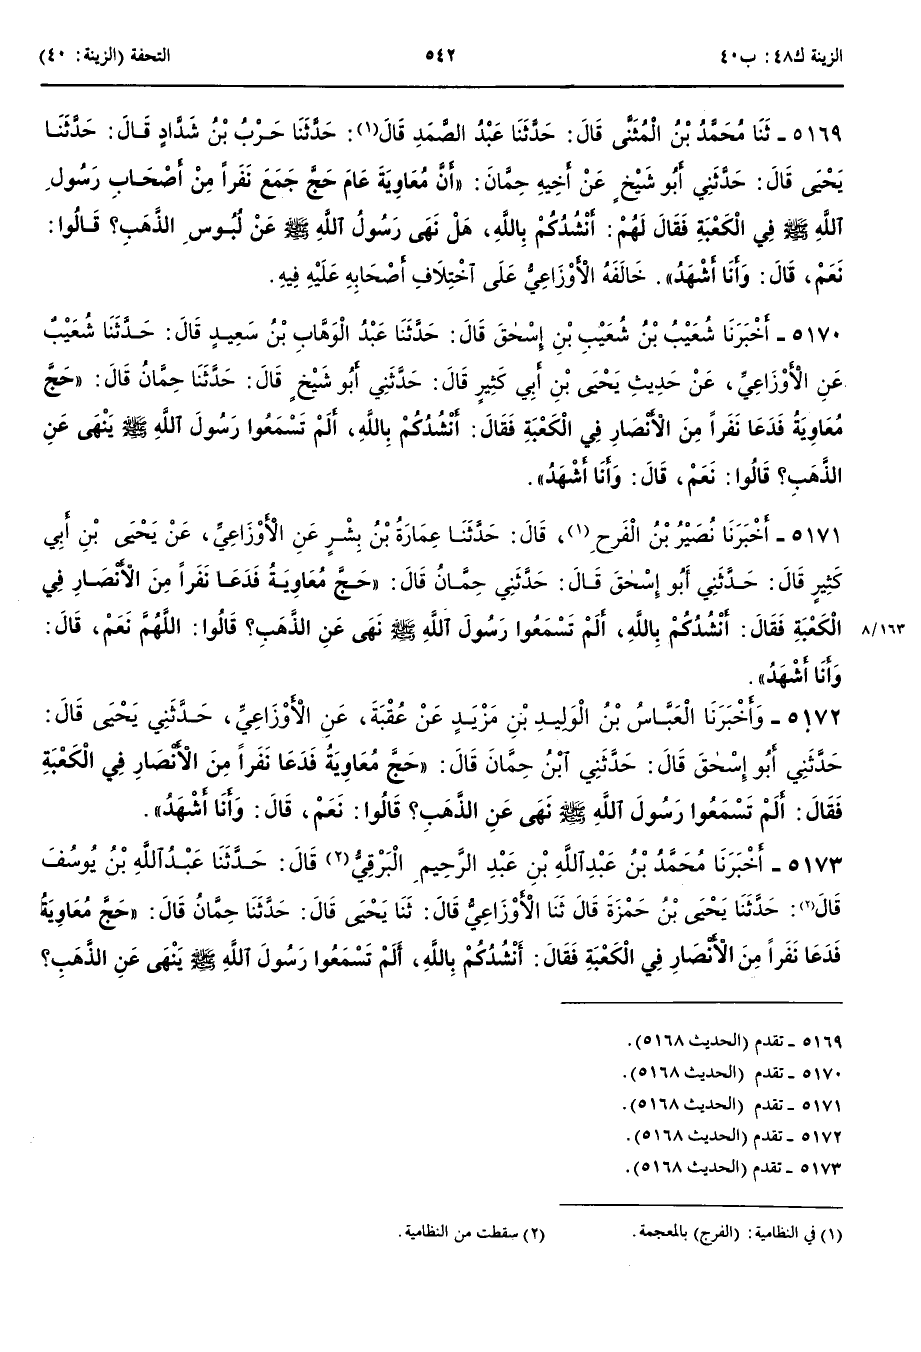 الزينة ك٤٨: ب٤٠ ٥٤٢ التحفة (الزينة: ٤٠)
٥١٦٩ ـ ثَنَا مُحَمَّدُ بْنُ الْمُثَنَّى قَالَ: حَدَّثَنَا عَبْدُ الصَّمَدِ قَالَ(١): حَدَّثَنَا حَرْبُ بْنُ شَدَّادٍ قَالَ: حَدَّثَنَا
يَحْيَى قَالَ: حَدَّثَنِي أَبُو شَيْخٍ عَنْ أَخِيهِ حِمَّانَ: «أَنَّ مُعَاوِيَةَ عَامَ حَجَّ جَمَعَ نَفَراً مِنْ أَصْحَابِ رَسُولِ
ٱللَّهِ ﷺ فِي الْكَعْبَةِ فَقَالَ لَهُمْ: أَنْشُدُكُمْ بِاللَّهِ، هَلْ نَهَى رَسُولُ ٱللَّهِ ﷺ عَنْ لُبُوسِ الذَّهَبِ؟ قَالُوا:
نَعَمْ، قَالَ: وَأَنَا أَشْهَدُ». خَالَفَهُ الْأَوْزَاعِيُّ عَلَى ٱخْتِلَافِ أَصْحَابِهِ عَلَيْهِ فِيهِ.
٥١٧٠ ـ أَخْبَرَنَا شُعَيْبُ بْنُ شُعَيْبِ بْنِ إِسْحٰقَ قَالَ: حَدَّثَنَا عَبْدُ الْوَهَّابِ بْنُ سَعِيدٍ قَالَ: حَدَّثَنَا شُعَيْبٌ
عَنِ الْأَوْزَاعِيِّ، عَنْ حَدِيثِ يَحْيَى بْنِ أَبِي كَثِيرٍ قَالَ: حَدَّثَنِي أَبُو شَيْخٍ قَالَ: حَدَّثَنَا حِمَّانُ قَالَ: «حَجَّ
مُعَاوِيَةُ فَدَعَا نَفَراً مِنَ الْأَنْصَارِ فِي الْكَعْبَةِ فَقَالَ: أَنْشُدُكُمْ بِاللَّهِ، أَلَمْ تَسْمَعُوا رَسُولَ ٱللَّهِ ﷺ يَنْهَى عَنِ
الذَّهَبِ؟ قَالُوا: نَعَمْ، قَالَ: وَأَنَا أَشْهَدُ».
٥١٧١ ـ أَخْبَرَنَا نُصَيْرُ بْنُ الْفَرَحِ(١)، قَالَ: حَدَّثَنَا عِمَارَةُ بْنُ بِشْرٍ عَنِ الْأَوْزَاعِيِّ، عَنْ يَحْيَى بْنِ أَبِي
كَثِيرٍ قَالَ: حَدَّثَنِي أَبُو إِسْحٰقَ قَالَ: حَدَّثَنِي حِمَّانُ قَالَ: «حَجَّ مُعَاوِيَةُ فَدَعَا نَفَراً مِنَ الْأَنْصَارِ فِي
الْكَعْبَةِ فَقَالَ: أَنْشُدُكُمْ بِاللَّهِ، أَلَمْ تَسْمَعُوا رَسُولَ ٱللَّهِ ﷺ نَهَى عَنِ الذَّهَبِ؟ قَالُوا: اللَّهُمَّ نَعَمْ، قَالَ: ٨/١٦٣
وَأَنَا أَشْهَدُ».
٥١٧٢ ـ وَأَخْبَرَنَا الْعَبَّاسُ بْنُ الْوَلِيدِ بْنِ مَزْيَدٍ عَنْ عُقْبَةَ، عَنِ الْأَوْزَاعِيِّ، حَدَّثَنِي يَحْيَى قَالَ:
حَدَّثَنِي أَبُو إِسْحٰقَ قَالَ: حَدَّثَنِي ٱبْنُ حِمَّانَ قَالَ: «حَجَّ مُعَاوِيَةُ فَدَعَا نَفَراً مِنَ الْأَنْصَارِ فِي الْكَعْبَةِ
فَقَالَ: أَلَمْ تَسْمَعُوا رَسُولَ ٱللَّهِ ﷺ نَهَى عَنِ الذَّهَبِ؟ قَالُوا: نَعَمْ، قَالَ: وَأَنَا أَشْهَدُ».
٥١٧٣ ـ أَخْبَرَنَا مُحَمَّدُ بْنُ عَبْدِٱللَّهِ بْنِ عَبْدِ الرَّحِيمِ الْبَرْقِيُّ(٢) قَالَ: حَدَّثَنَا عَبْدُٱللَّهِ بْنُ يُوسُفَ
قَالَ(٢): حَدَّثَنَا يَحْيَى بْنُ حَمْزَةَ قَالَ ثَنَا الْأَوْزَاعِيُّ قَالَ: ثَنَا يَحْيَى قَالَ: حَدَّثَنَا حِمَّانُ قَالَ: «حَجَّ مُعَاوِيَةُ
فَدَعَا نَفَراً مِنَ الْأَنْصَارِ فِي الْكَعْبَةِ فَقَالَ: أَنْشُدُكُمْ بِاللَّهِ، أَلَمْ تَسْمَعُوا رَسُولَ ٱللَّهِ ﷺ يَنْهَى عَنِ الذَّهَبِ؟
٥١٦٩ ـ تقدم (الحديث ٥١٦٨).
٥١٧٠ ـ تقدم (الحديث ٥١٦٨).
٥١٧١ ـ تقدم (الحديث ٥١٦٨).
٥١٧٢ ـ تقدم (الحديث ٥١٦٨).
٥١٧٣ ـ تقدم (الحديث ٥١٦٨).
(١) في النظامية: (الفرج) بالمعجمة. (٢) سقطت من النظامية.